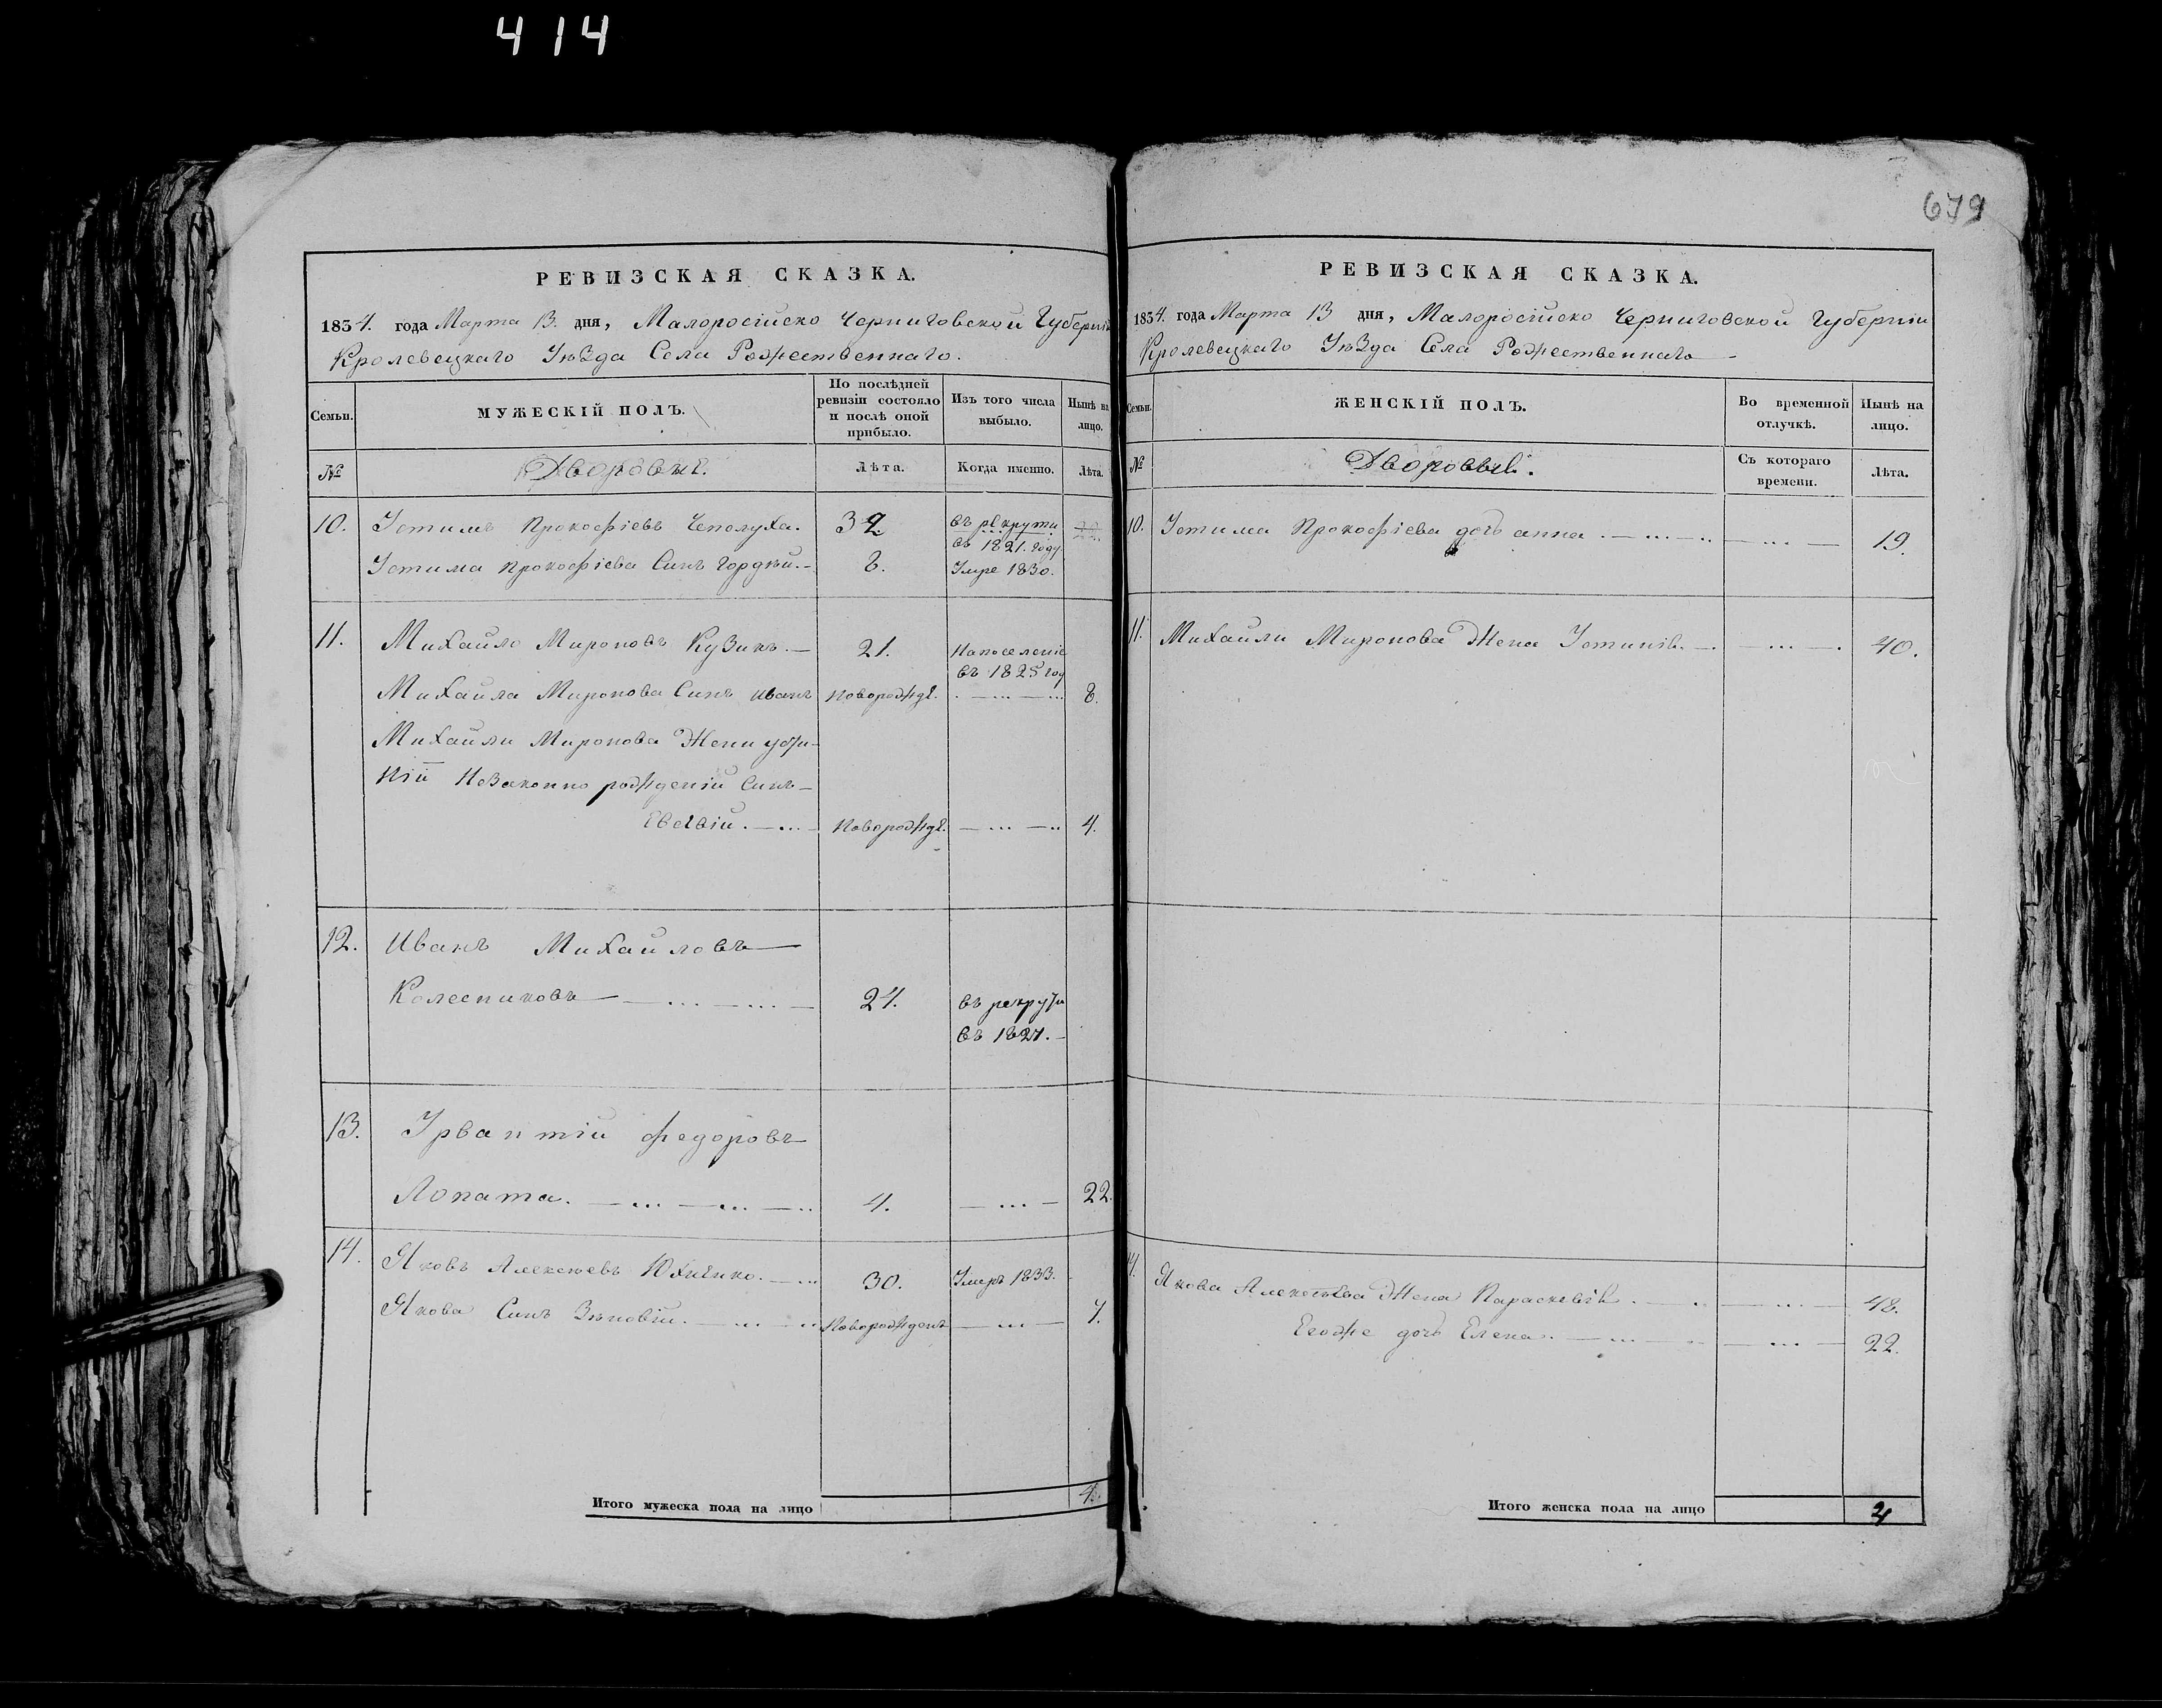 414
679
РЕВИЗСКАЯ СКАЗКА.
1834. года Марта 13. дня, Малоросійско Черниговской Губерніи
Кролевецкаго Уѣзда Села Рожественнаго.
Семьи.
МУЖЕСКІЙ ПОЛЪ.
По послѣдней ревизіи состояло и послѣ оной прибыло.
Изъ того числа выбыло.
Нынѣ на лицо.
№
Дворовые.
Лѣта.
Когда именно.
Лѣта.
10. Устимъ Прокофіевъ Чеполуха. 32 въ рекрути
въ 1821. году
Устима Прокофіева Синъ Гордѣй. 8. Умре 1830.
11. Михайло Мироновъ Кузикъ. 21. На поселеніе
въ 1825 год
Михайла Миронова Синъ иванъ новорожде. 8.
Михайли Миронова Жени усти-
ніи Незаконно рожденій Синъ
Евсевій. Новорожде. 4.
12. Иванъ Михайловъ
Колесниковъ 24. въ рекрути
въ 1827.
13. Урвантій Федоровъ
Лопата. 4. 22.
14. Яковъ Алексѣевъ Юхненко. 30. Умръ 1833.
Якова Синъ Зѣновій. Новорожденъ 7.
Итого мужеска пола на лицо 4.
РЕВИЗСКАЯ СКАЗКА.
1834. года Марта 13 дня, Малоросійско Черниговской Губерніи
Кролевецкаго Уѣзда Села Рожественнаго
Семьи.
ЖЕНСКІЙ ПОЛЪ.
Во временной отлучкѣ.
Нынѣ на лицо.
№
Дворовые.
Съ котораго времени.
Лѣта.
10. Устима Прокофіева дочъ анна. 19.
11. Михайли Миронова Жена Устинія. 40.
14. Якова Алексѣева Жена Параскевія. 48.
Егоже дочъ Елена. 22.
Итого женска пола на лицо 4